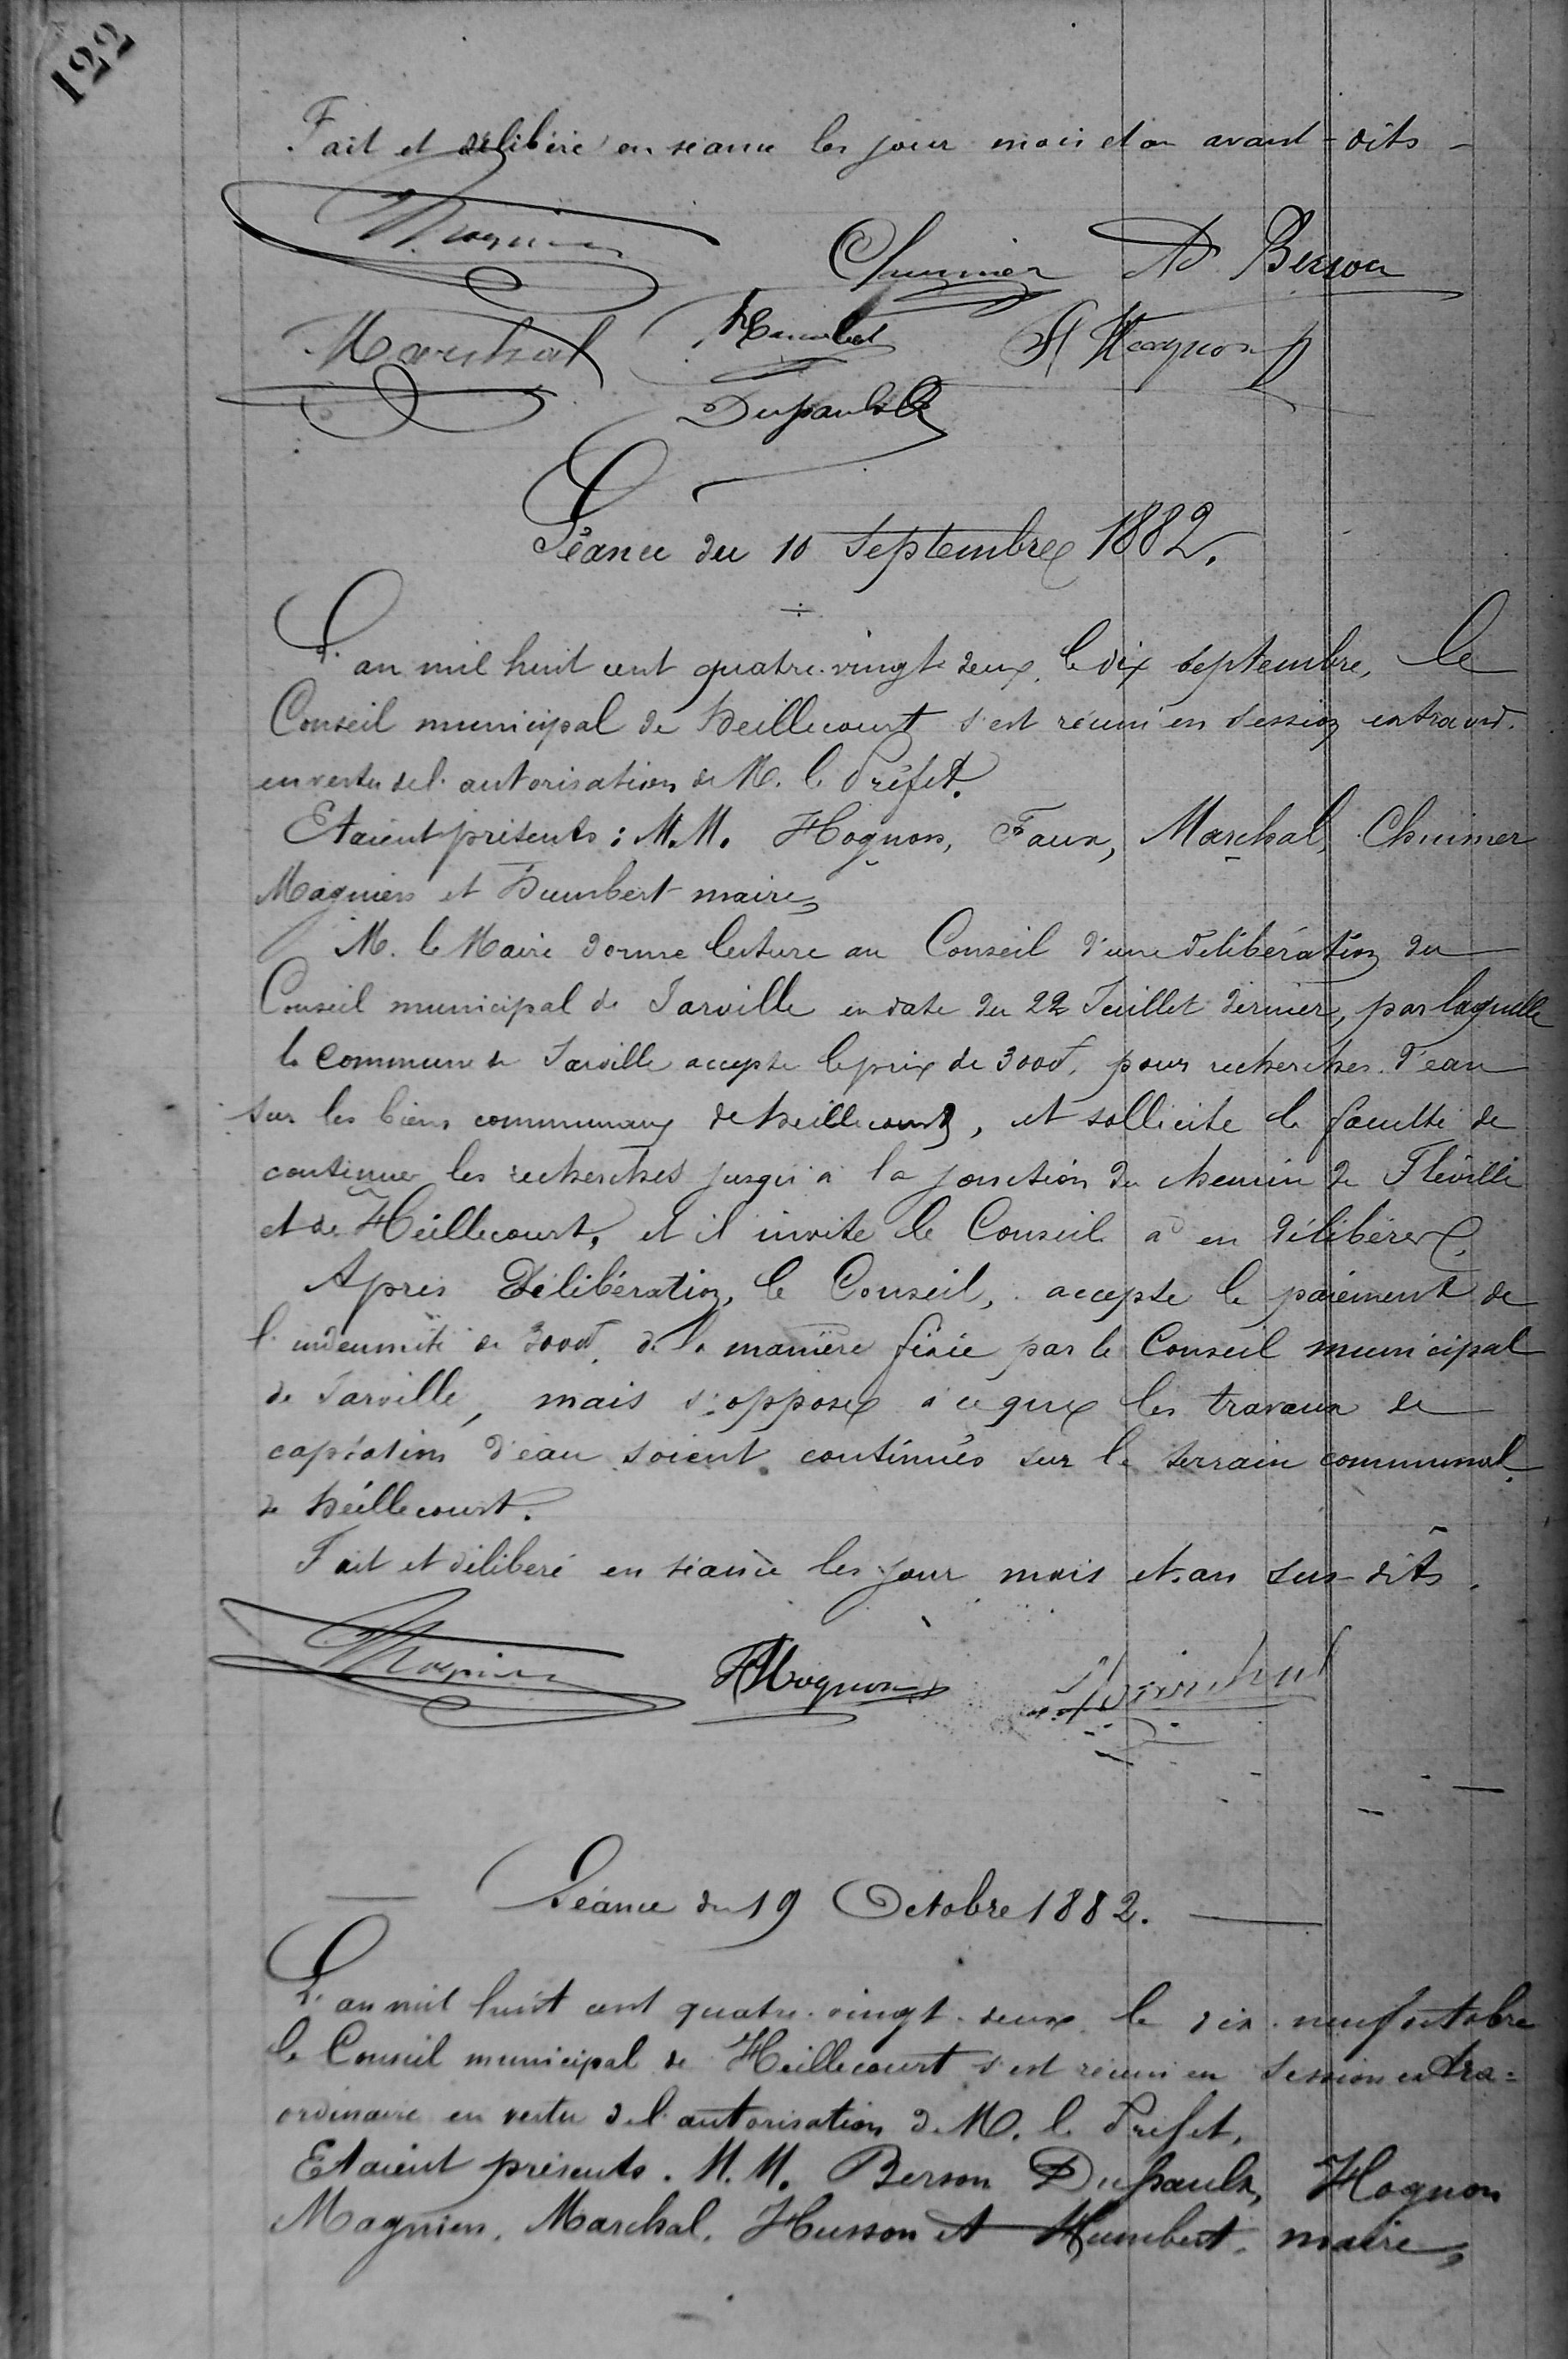 122
Fait et délibéré en séance les jour mois et an avant-dits -
Magnien Chuimer Ad Berson
Marchal Humbert H Hognon
Dupaulx
Séance du 10 Septembre 1882.
L'an mil huit cent quatre-vingt deux, le dix septembre, le
Conseil municipal de heillecourt s'est réuni en session extraord.
en vertu de l'autorisation de M. le Préfet.
Etaient présents : M.M. Hognon, Faux, Marchal, Chuimer
Magnien et humbert maire,
M. le Maire donne lecture au Conseil d'une délibération du
Conseil municipal de Jarville en date du 22 Juillet dernier, par laquelle
la commune de Jarville accepte le prix de 300f, pour recherches d'eau
sur les biens communaux de heillecourt, et sollicite la faculté de
continuer les recherches jusqu'à la jonction du chemin de Fléville
et de Heillecourt, et il invite le Conseil à en délibérer.
Après Délibération, le Conseil, accepte le paiement de
l'indemnité de 300f. de la manière fixée par le Conseil municipal
de Jarville, mais s'oppose à ce que les travaux de
captation d'eau soient continués sur le terrain communal
de heillecourt.
Fait et délibéré en séance les jour mois et an sus-dits.
Magnien H Hognon Marchal
Séance du 19 Octobre 1882.
L'an mil huit cent quatre-vingt-deux le dix-neuf octobre
le Conseil municipal de Heillecourt s'est réuni en session extra=
ordinaire en vertu de l'autorisation de M. le Préfet,
Etaient présents. M.M. Berson Dupaulx, Hognon
Magnien, Marchal, Husson et Humbert, maire,